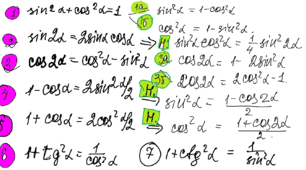 1 sin²α+cos²α=1 1a sin²α=1-cos²α
1б cos²α=1-sin²α
2 sin2α=2sinαcosα ⇒ H sin²αcos²α=1/4 sin²2α
3 cos2α=cos²α-sin²α 3a cos2α=1-2sin²α
3б cos2α=2cos²α-1
4 1-cosα=2sin²α/2 H ⇒ sin²α=(1-cos2α)/2
5 1+cosα=2cos²α/2 H ⇒ cos²α=(1+cos2α)/2
6 1+tg²α=1/cos²α 7 1+ctg²α=1/sin²α